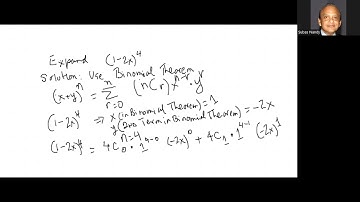 Expand (1-2x)^4
Solution: Use Binomial Theorem
(x+y)^n = Σ_{r=0}^{n} (nCr) x^{n-r} · y^r
(1-2x)^4 ⇒ x (in Binomial Theorem) = 1
y (2nd Term in Binomial Theorem) = -2x
n = 4
(1-2x)^4 = 4C_0 · 1^{4-0} (-2x)^0 + 4C_1 · 1^{4-1} (-2x)^1
Subas Nandy